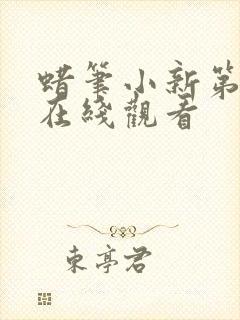 蜡筆小新第
在綫觀看
東亭君